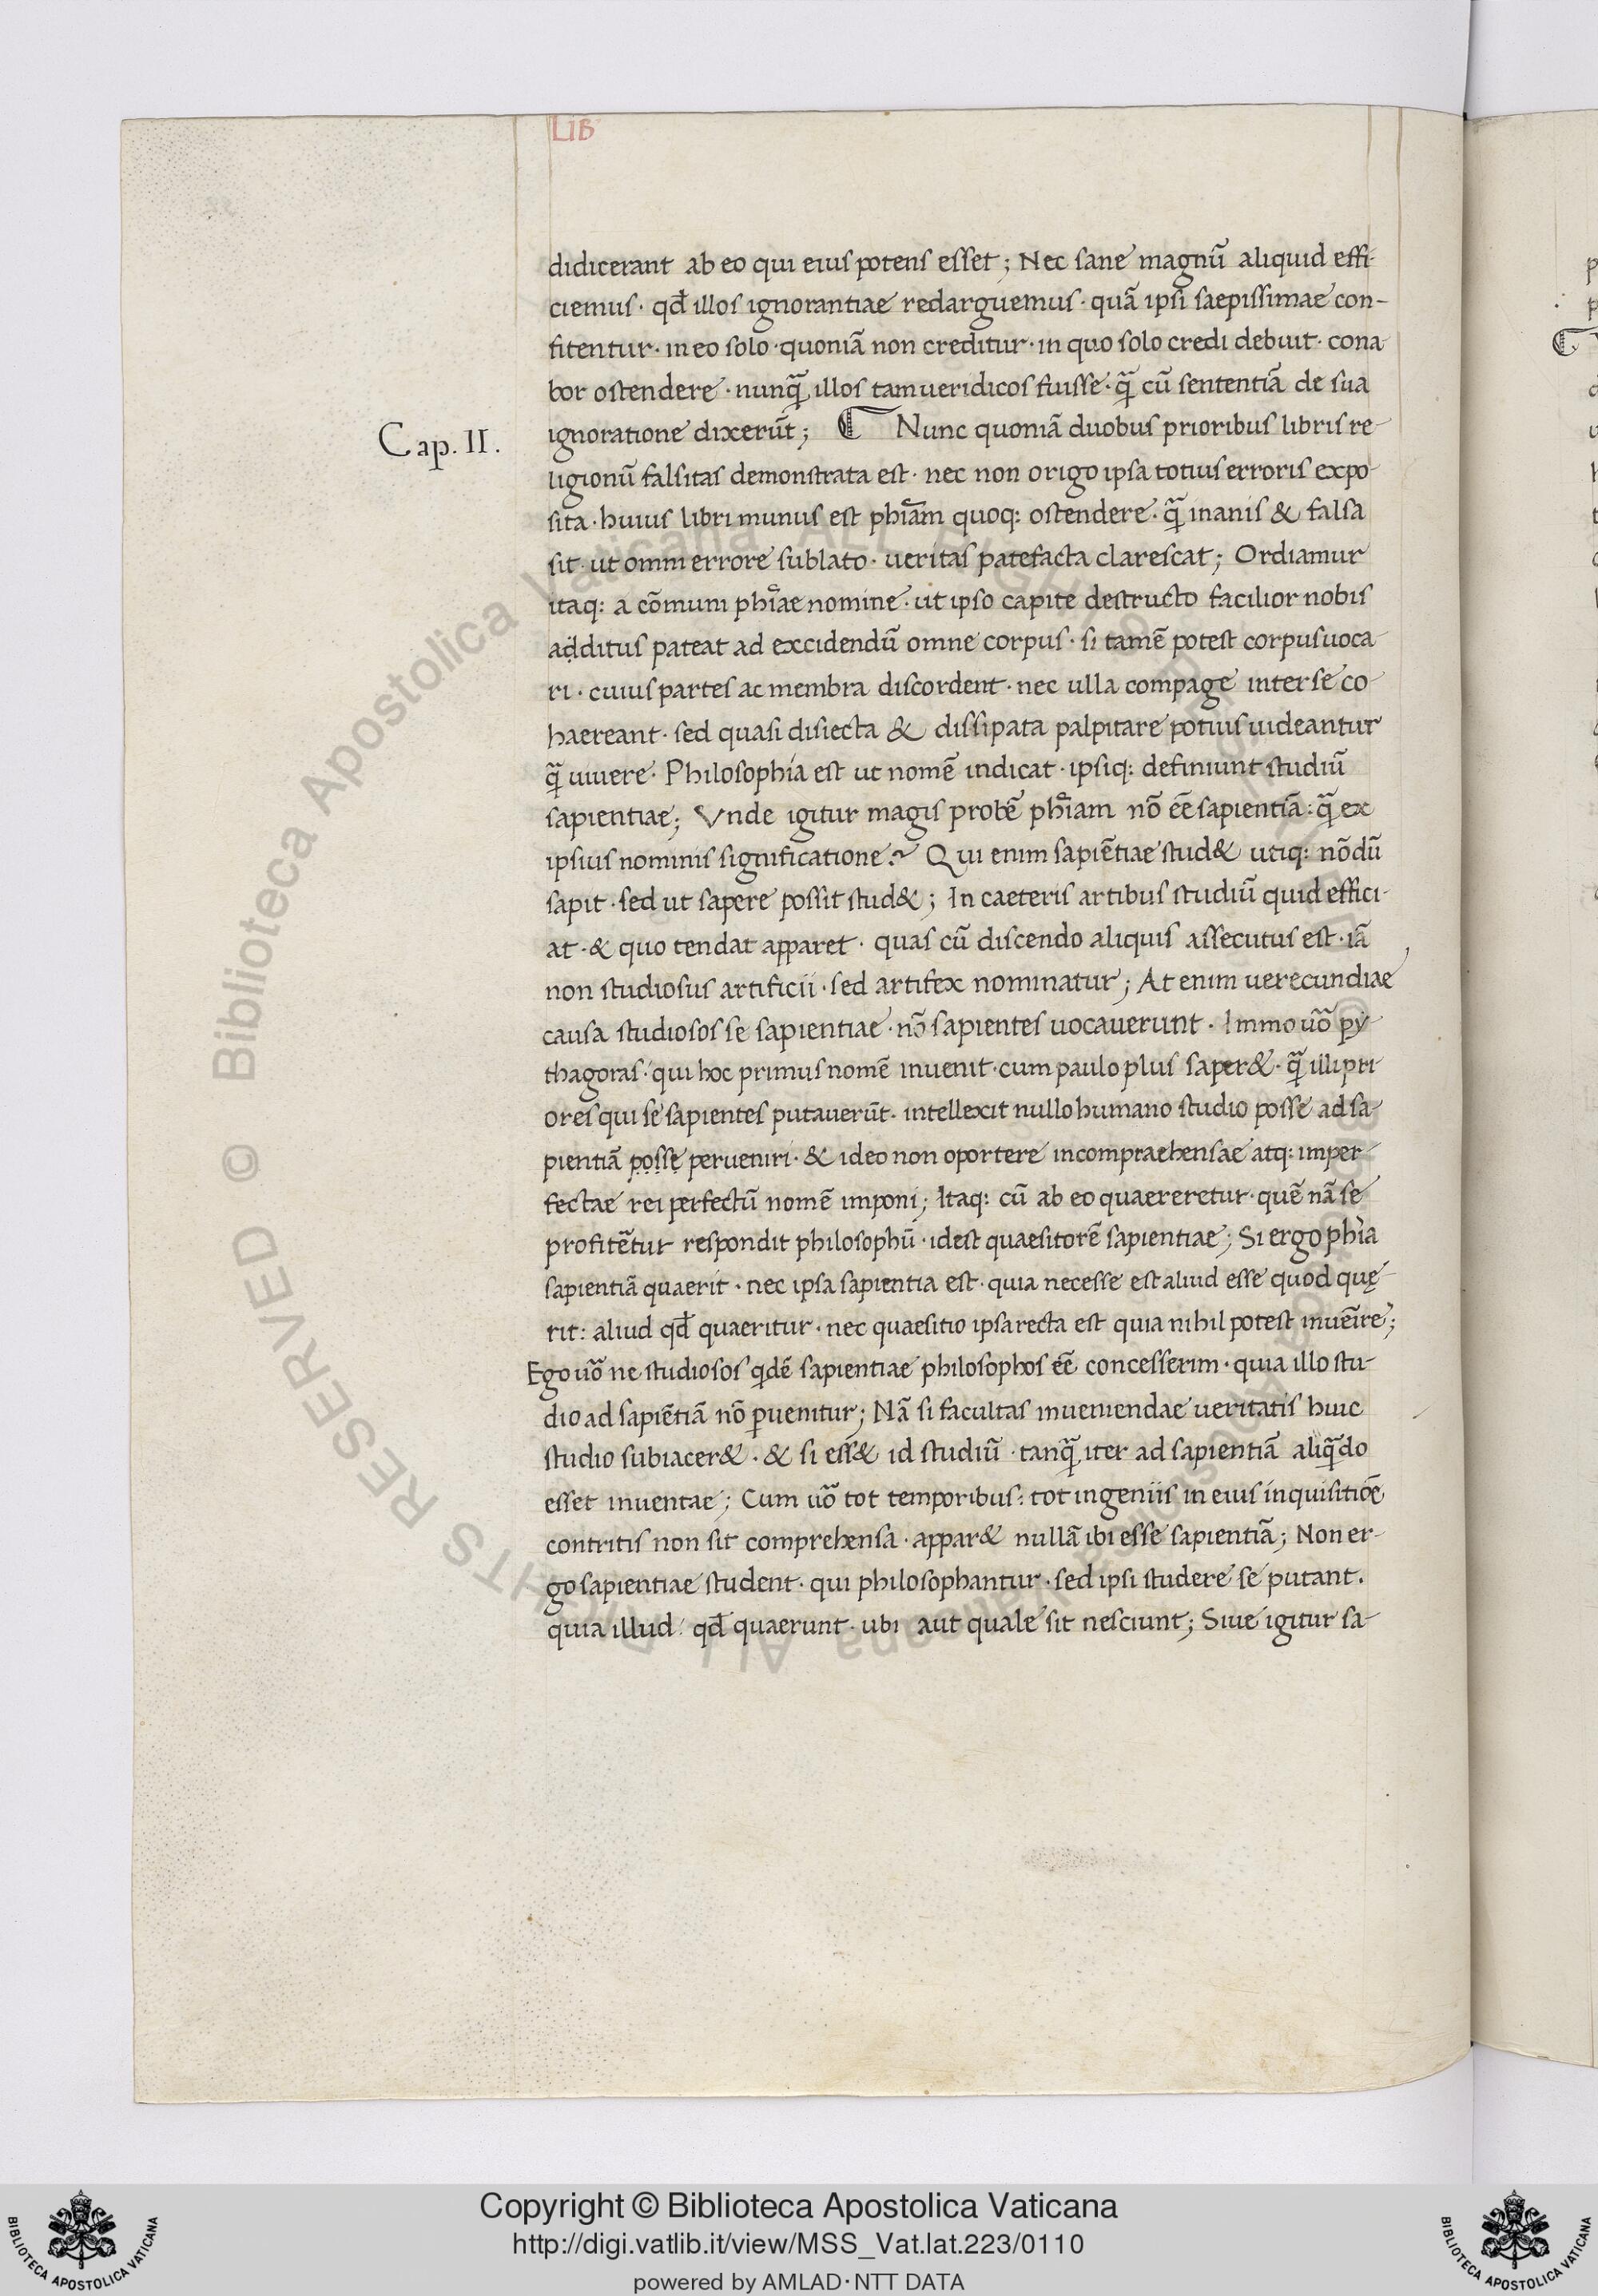 LIB
didicerant ab eo qui eius potens esset; Nec sane magnū aliquid effi-
ciemus · qđ illos ignorantiae redarguemus · quā ipsi saepissimae con-
fitentur · in eo solo · quoniā non creditur · in quo solo credi debuit · cona-
bor ostendere · nunq̄ illos tam ueridicos fuisse · q̄ cū sententiā de sua
Cap. II.
ignoratione dixerūt; ₵ Nunc quoniā duobus prioribus libris re-
ligionū falsitas demonstrata est · nec non origo ipsa totius erroris expo-
sita · huius libri munus est phīam quoq: ostendere · q̄ inanis & falsa
sit · ut omni errore sublato · ueritas patefacta clarescat; Ordiamur
itaq: a cōmuni phīae nomine · ut ipso capite destructo facilior nobis
adḍitus pateat ad excidendū omne corpus · si tamē potest corpus uoca-
ri · cuius partes ac membra discordent · nec ulla compage inter se co-
haereant · sed quasi disiecta & dissipata palpitare potius uideantur
q̄ uiuere · Philosophia est ut nomē indicat · ipsiq: definiunt studiū
sapientiae; Vnde igitur magis probē phīam nō ēē sapientiā: q̄ ex
ipsius nominis significatione? Qui enim sapiētiae stud& utiq: nōdū
sapit · sed ut sapere possit stud&; In caeteris artibus studiū quid effici-
at · & quo tendat apparet · quas cū discendo aliquis assecutus est · iā
non studiosus artificii · sed artifex nominatur; At enim uerecundiae
causa studiosos se sapientiae · nō sapientes uocauerunt · Immo uō py-
thagoras · qui hoc primus nomē inuenit · cum paulo plus saper& · q̄ illi pri-
ores qui se sapientes putauerūt · intellexit nullo humano studio posse ad sa-
pientiā p̣oṣṣẹ perueniri · & ideo non oportere incompraehensae atq: imper-
fectae rei perfectū nomē imponi; Itaq: cū ab eo quaereretur · quē nā se
profitētur respondit philosophū · idest quaesitorē sapientiae; Si ergo phīa
sapientiā quaerit · nec ipsa sapientia est · quia necesse est aliud esse quod quę-
rit: aliud qđ quaeritur · nec quaesitio ipsa recta est quia nihil potest inueīre;
Ego uō ne studiosos qdē sapientiae philosophos ēē concesserim · quia illo stu-
dio ad sapiētiā nō puenitur; Nā si facultas inueniendae ueritatis huic
studio subiacer& · & si ess& id studiū · tanq̄ iter ad sapientiā aliq̄do
esset inuentae; Cum uō tot temporibus: tot ingeniis in eius inquisitiōe
contritis non sit comprehensa · appar& nullā ibi esse sapientiā; Non er-
go sapientiae student · qui philosophantur · sed ipsi studere se putant.
quia illud · qđ quaerunt · ubi aut quale sit nesciunt; Siue igitur sa-
© Biblioteca Apostolica Vaticana ALL RIGHTS RESERVED
Copyright © Biblioteca Apostolica Vaticana
http://digi.vatlib.it/view/MSS_Vat.lat.223/0110
powered by AMLAD·NTT DATA
BIBLIOTECA APOSTOLICA VATICANA
BIBLIOTECA APOSTOLICA VATICANA